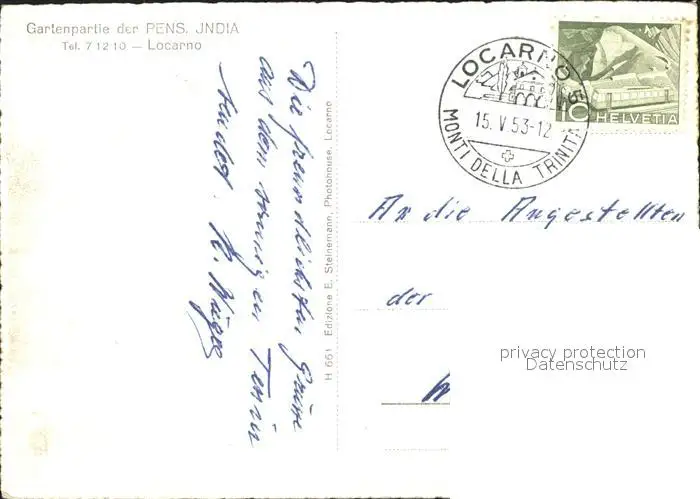 Gartenpartie der PENS. JNDIA
Tel. 7 12 10 — Locarno
Die freundlichsten Grüsse
aus dem sonnigen Tessin
sendet
H 661 Edizione E. Steinemann, Photohouse, Locarno
LOCARNO 5
15. V. 53-12
MONTI DELLA TRINITÀ
10
HELVETIA
An die Angestellten
der
privacy protection
Datenschutz